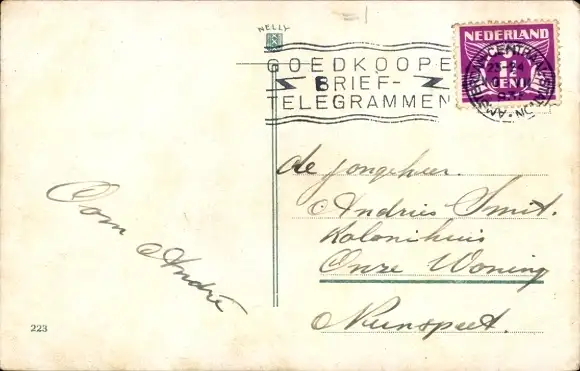 NELLY
GOEDKOOPE
BRIEF-
TELEGRAMMEN
NEDERLAND
1½
CENT
de jongeheer.
Andries Smit.
Kolonihuis
Onze Woning
Nunspeet.
Oom André
223